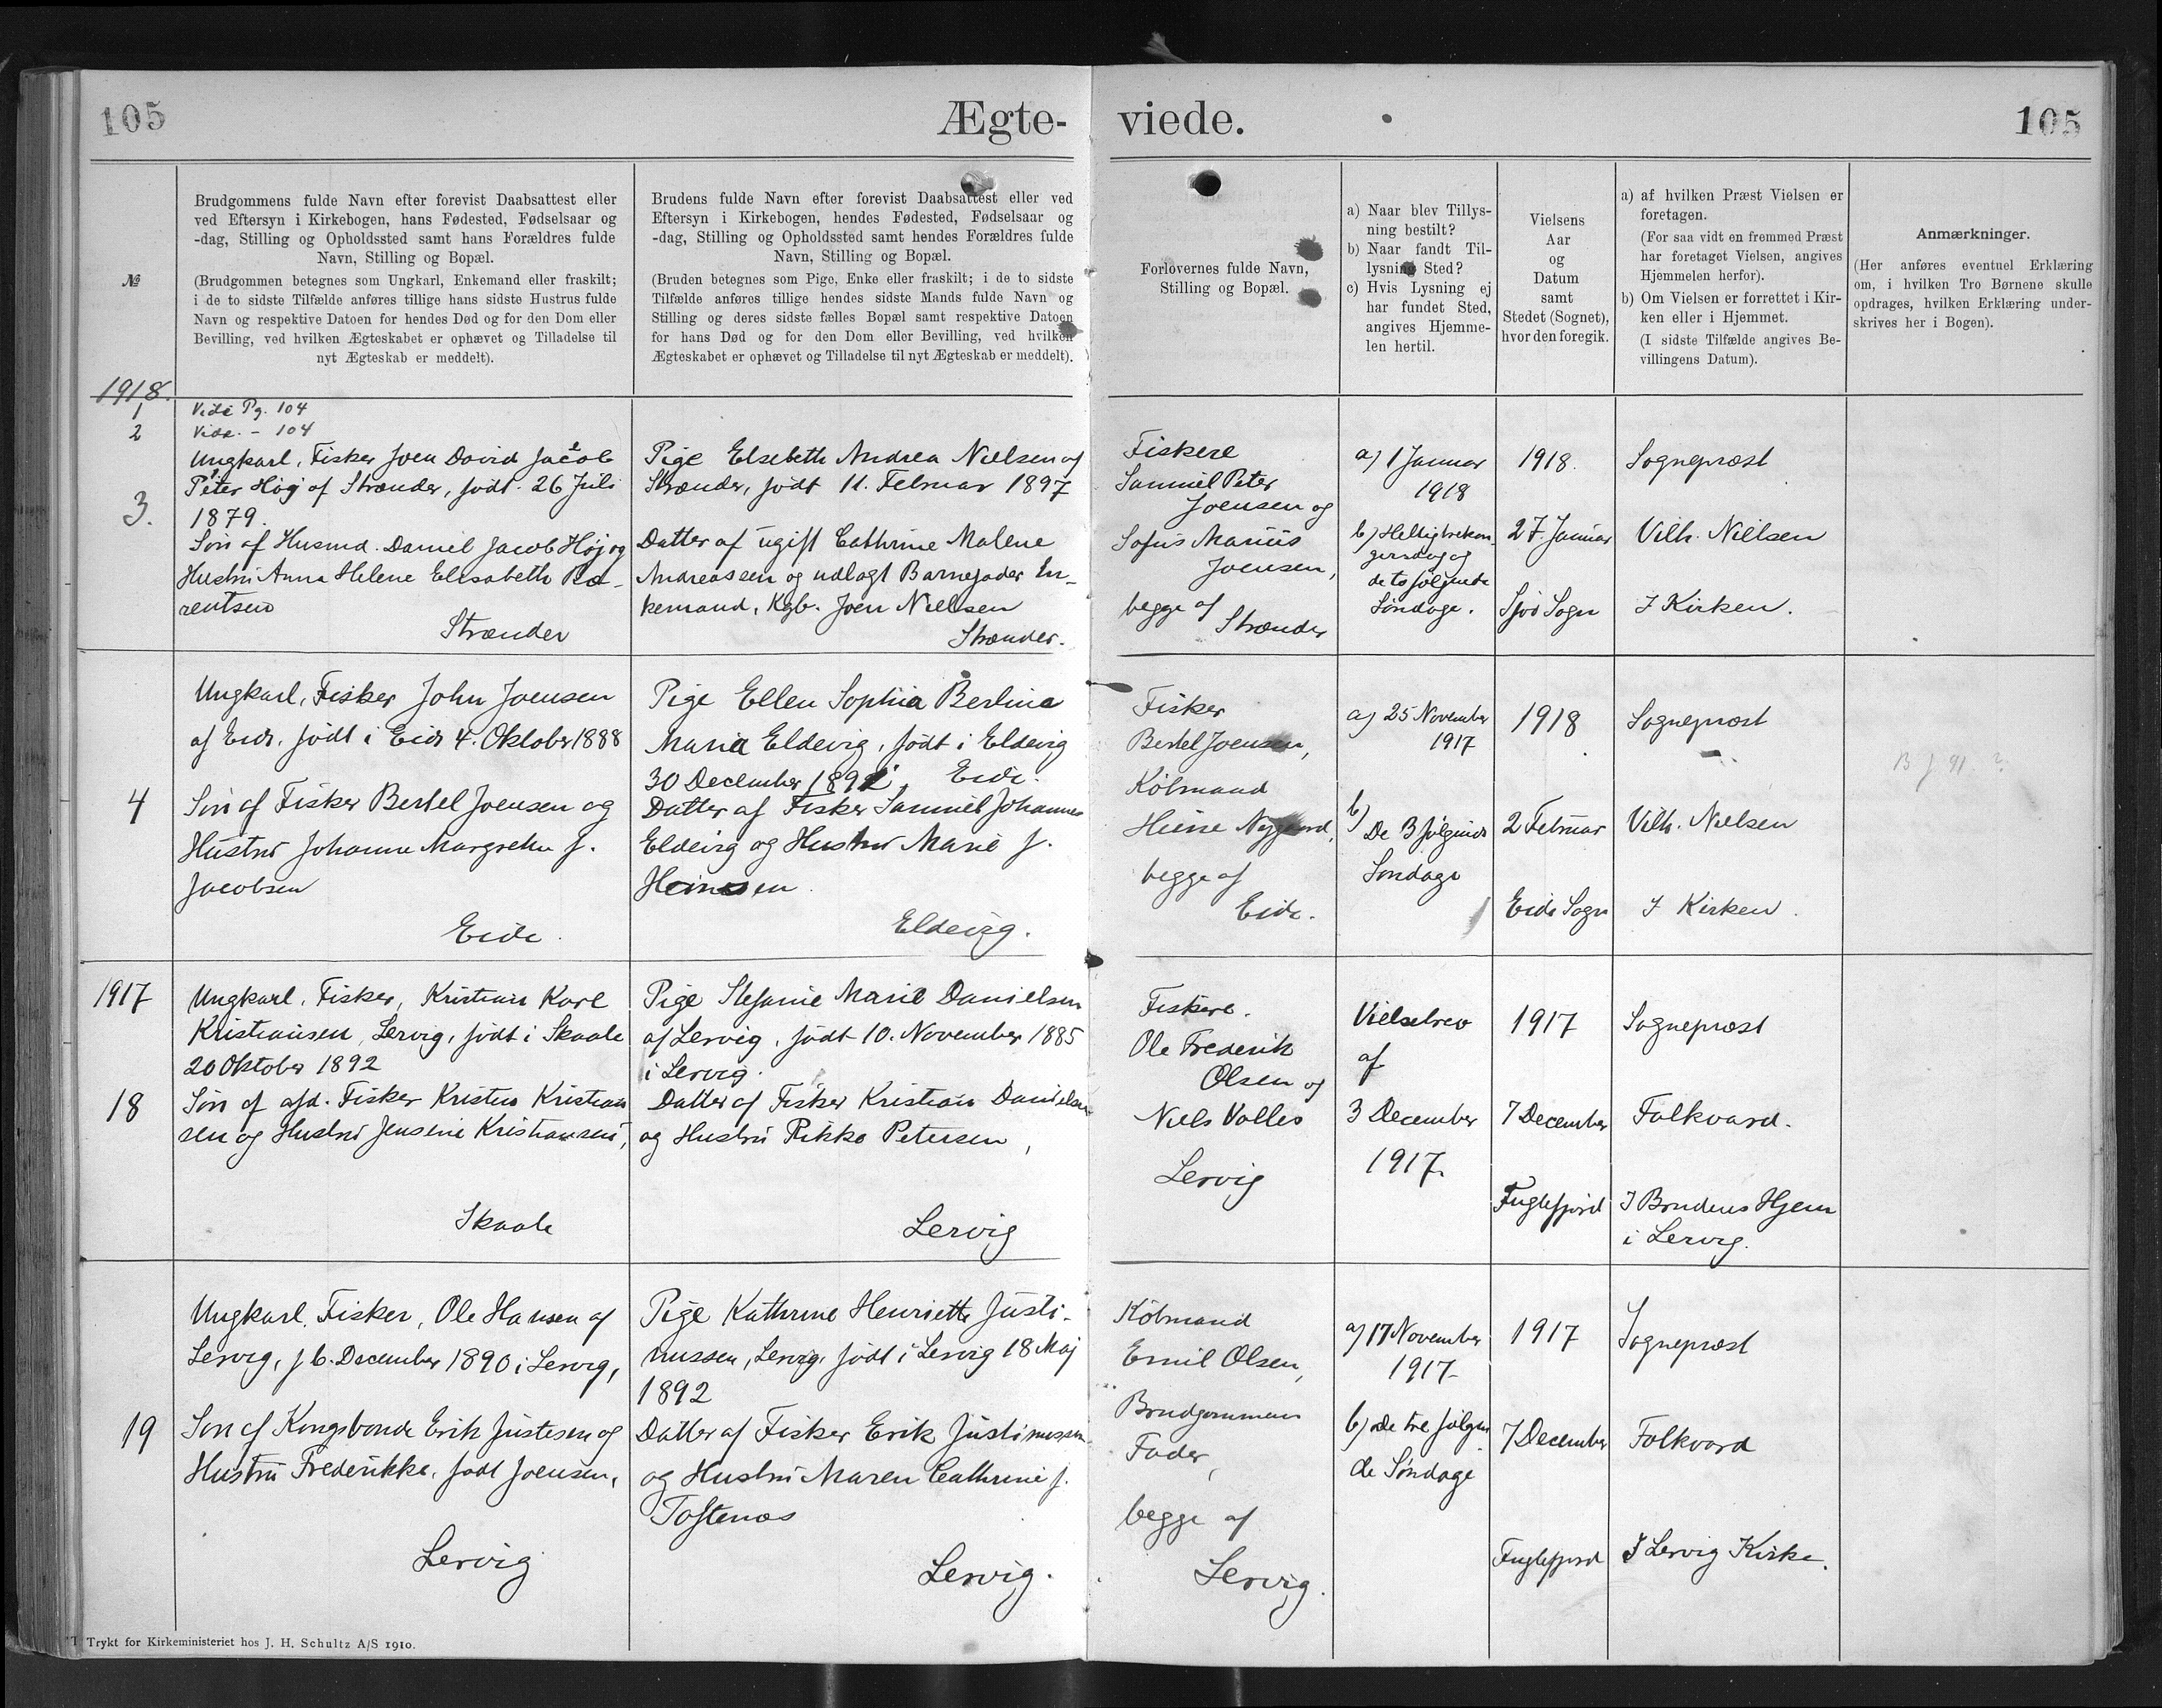 105
Ægte-
viede.
105
№
Brudgommens fulde Navn efter forevist Daabsattest eller
ved Eftersyn i Kirkebogen, hans Fødested, Fødselsaar og
-dag, Stilling og Opholdssted samt hans Forældres fulde
Navn, Stilling og Bopæl.
(Brudgommen betegnes som Ungkarl, Enkemand eller fraskilt;
i de to sidste Tilfælde anføres tillige hans sidste Hustrus fulde
Navn og respektive Datoen for hendes Død og for den Dom eller
Bevilling, ved hvilken Ægteskabet er ophævet og Tilladelse til
nyt Ægteskab er meddelt).
Brudens fulde Navn efter forevist Daabsattest eller ved
Eftersyn i Kirkebogen, hendes Fødested, Fødselsaar og
-dag, Stilling og Opholdssted samt hendes Forældres fulde
Navn, Stilling og Bopæl.
(Bruden betegnes som Pige, Enke eller fraskilt; i de to sidste
Tilfælde anføres tillige hendes sidste Mands fulde Navn og
Stilling og deres sidste fælles Bopæl samt respektive Datoen
for hans Død og for den Dom eller Bevilling, ved hvilken
Ægteskabet er ophævet og Tilladelse til nyt Ægteskab er meddelt).
Forlovernes fulde Navn,
Stilling og Bopæl.
a) Naar blev Tillys-
ning bestilt?
b) Naar fandt Til-
lysning Sted?
c) Hvis Lysning ej
har fundet Sted,
angives Hjemme-
len hertil.
Vielsens
Aar
og
Datum
samt
Stedet (Sognet),
hvor den foregik.
a) af hvilken Præst Vielsen er
foretagen.
(For saa vidt en fremmed Præst
har foretaget Vielsen, angives
Hjemmelen herfor).
b) Om Vielsen er forrettet i Kir-
ken eller i Hjemmet.
(I sidste Tilfælde angives Be-
villingens Datum).
Anmærkninger.
(Her anføres eventuel Erklæring
om, i hvilken Tro Børnene skulle
opdrages, hvilken Erklæring under-
skrives her i Bogen).
1918.
1 Vide Pg. 104
2 Vide. - 104
3.
Ungkarl, Fisker Joen David Jacob
Peter Høj af Strænder, født. 26 Juli
1879.
Søn af Husmd. Daniel Jacob Høj og
Hustru Anna Helene Elisabeth
rentsen
Strænder
Pige Elsebeth Andrea Nielsen af
Strænder, født 11. Februar 1897
Datter af ugift Cathrine Malene
Andreassen og udlagt Barnefader En-
kemand, Kgb. Joen Nielsen
Strænder.
Fiskere
Samuel Peter
Joensen og
Sofus Marius
Joensen,
begge af
Strænder
a) 1 Januar
1918
b) Helligtrekon-
gersdag og
de to følgende
Søndage.
1918.
27. Januar
Sjov Sogn
Sognepræst
Vilh. Nielsen
I Kirken.
4
Ungkarl, Fisker John Joensen
af Eide, født i Eide 4. Oktober 1888
Søn af Fisker Bertel Joensen og
Hustru Johanne Margrethe f.
Jacobsen
Eide.
Pige Ellen Sophia Berlina
Maria Eldevig, født i Eldevig
30 December 1891, Eide.
Datter af Fisker Samuel Johannes
Eldevig og Hustru Marie f.
Heinesen
Eldevig.
Fisker
Bertel Joensen,
Købmand
Heine Nygaard,
begge af
Eide.
a) 25 November
1917
b)
De 3 følgende
Søndage
1918
2 Februar
Eide Sogn
Sognepræst
Vilh. Nielsen
I Kirken.
1917
18
Ungkarl, Fisker, Kristian Karl
Kristiansen, Lervig, født i Skaale
20 Oktober 1892
Søn af afd. Fisker Kristen Kristian
sen og Hustru Jensene Kristiansen,
Skaale
Pige Stefanie Marie Danielsen
af Lervig, født 10. November 1885
i Lervig.
Datter af Fisker Kristian Danielsen
og Hustru Rikke Petersen,
Lervig
Fiskere.
Ole Frederik
Olsen og
Niels Valles
Lervig
Vielsebrev
af
3 December
1917.
1917
7 December
Fuglefjord
Sognepræst
Falkvard.
I Brudens Hjem
i Lervig.
19
Ungkarl, Fisker, Ole Hansen af
Lervig, f 6. December 1890 i Lervig,
Søn af Kongsbonde Erik Justesen og
Hustru Frederikke, født Joensen,
Lervig
Pige Kathrine Henriette Justi-
nussen, Lervig, født i Lervig 18 Maj
1892
Datter af Fisker Erik Justinussen
og Hustru Maren Cathrine f.
Toftenes
Lervig.
Købmand
Emil Olsen,
Brudgommens
Fader,
begge af
Lervig.
a) 17 November
1917
b) De tre følgen
de Søndage
1917
7 December
Fuglefjord
Sognepræst
Falkvard
I Lervig Kirke.
Trykt for Kirkeministeriet hos J. H. Schultz A/S 1910.